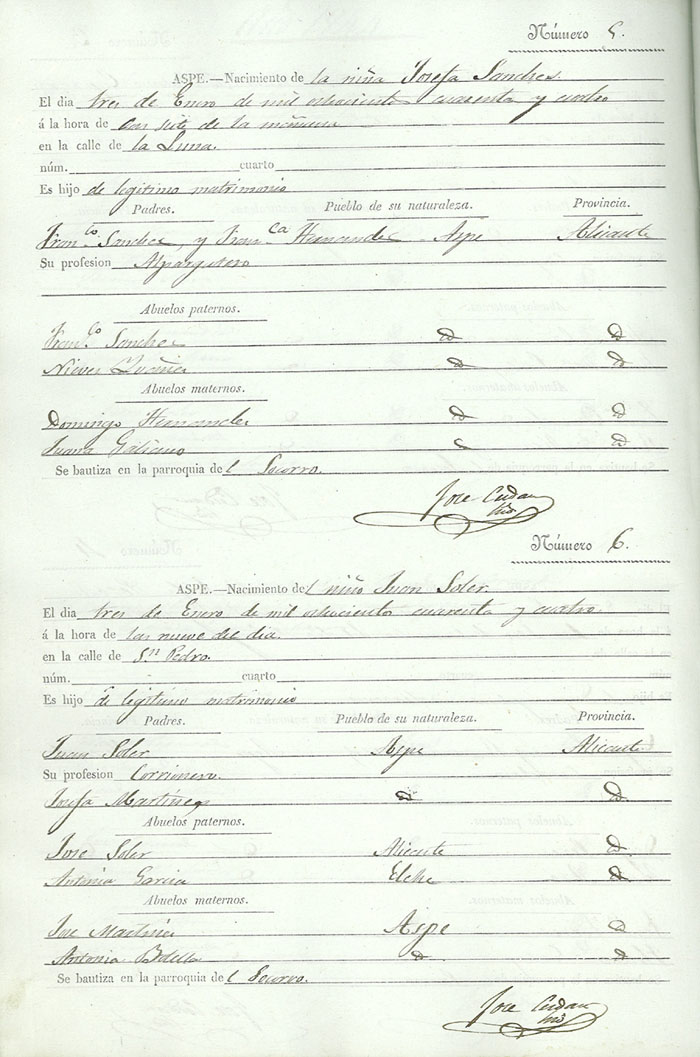 Número 5.
ASPE.—Nacimiento de la niña Josefa Sanches.
El dia tres de Enero de mil ochociento cuarenta y cuatro
á la hora de siete de la mañana
en la calle de la Luna.
núm. cuarto
Es hijo de legitimo matrimonio
Padres. Pueblo de su naturaleza. Provincia.
Fran.co Sanchez y Fran.ca Hernandes Aspe Alicante
Su profesion Alpargatero
Abuelos paternos.
Fran.co Sanches id id
Nieves id id
Abuelos maternos.
Domingo Hernandes id id
Juana Galiano id
Se bautiza en la parroquia del Socorro.
Jose
Número 6.
ASPE.—Nacimiento del niño Juan Soler.
El dia tres de Enero de mil ochociento cuarenta y cuatro
á la hora de las nueve del dia.
en la calle de S.n Pedro.
núm. cuarto
Es hijo de legitimo matrimonio
Padres. Pueblo de su naturaleza. Provincia.
Juan Soler Aspe Alicante
Su profesion
Josefa Martinez id id
Abuelos paternos.
Jose Soler Alicante id
Antonia Garcia Elche id
Abuelos maternos.
Jose Martinez Aspe id
Antonia Botella id id
Se bautiza en la parroquia del Socorro.
Jose